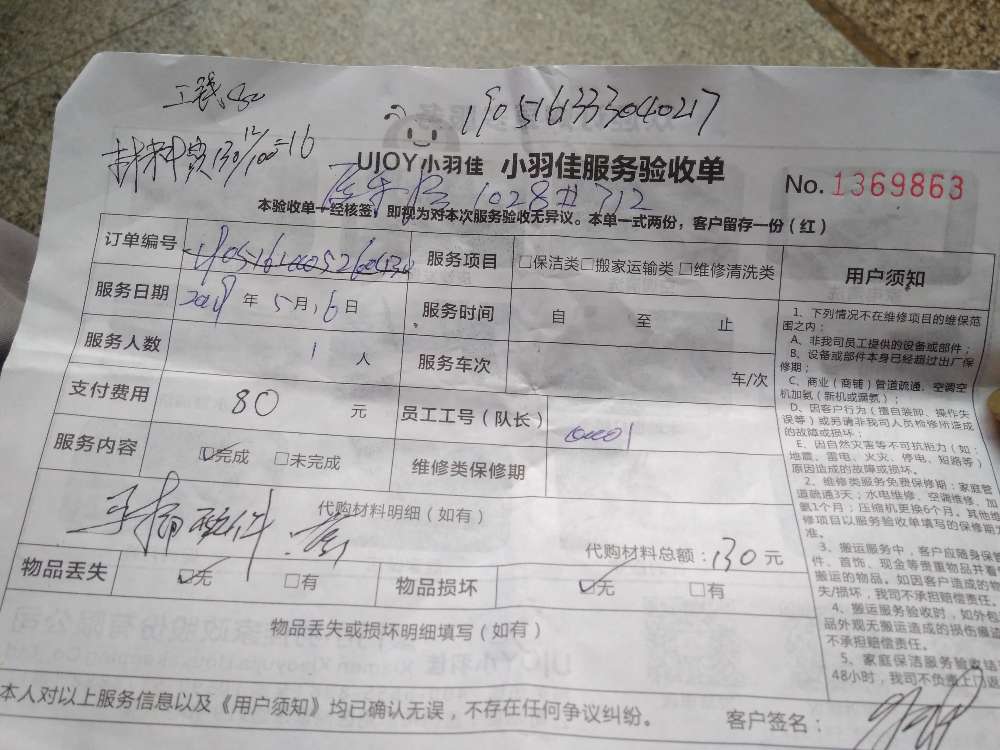 工钱 80
1905161333040217
材料费130 12/100=16
UJOY小羽佳 小羽佳服务验收单
No. 1369863
1028#712
本验收单一经核签，即视为对本次服务验收无异议。本单一式两份，客户留存一份（红）
订单编号
服务项目 □保洁类□搬家运输类□维修清洗类
用户须知
服务日期 2019年5月16日
服务时间 自 至 止
服务人数 1人
服务车次 车/次
支付费用 80 元
员工工号（队长）
服务内容 ☑完成 □未完成
维修类保修期
1、下列情况不在维修项目的维保范
围之内：
A、非我司员工提供的设备或部件；
B、设备或部件本身已经超过出厂保
修期；
C、商业（商铺）管道疏通、空调空
机加氨（新机或漏氨）；
D、因客户行为（擅自装卸、操作失
误等）或另请非我司人员检修所造成
的故障或损坏；
E、因自然灾害等不可抗拒力（如：
地震、雷电、火灾、停电、短路等）
原因造成的故障或损坏。
2、维修类服务免费保修期：家庭管
道疏通3天；水电维修、空调维修、加
氨1个月；压缩机更换6个月。其他维
修项目以服务验收单填写的保修期
准。
3、搬运服务中，客户应随身保管
件、首饰、现金等贵重物品并看
搬运的物品。如因客户造成的物
失/损坏，我司不承担赔偿责任。
4、搬运服务验收时，如外包
品外观无搬运造成的损伤痕
不承担赔偿责任。
5、家庭保洁服务验收结
48小时，我司不负责上门返
代购材料明细（如有）
代购材料总额：130元
物品丢失 ☑无 □有
物品损坏 ☑无 □有
物品丢失或损坏明细填写（如有）
本人对以上服务信息以及《用户须知》均已确认无误，不存在任何争议纠纷。
客户签名：